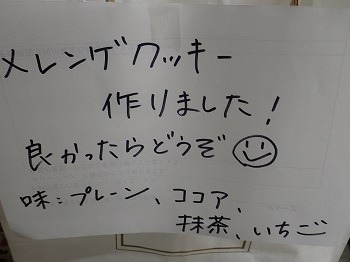 メレンゲクッキー
作りました!
良かったらどうぞ
味:プレーン、ココア、
抹茶、いちご